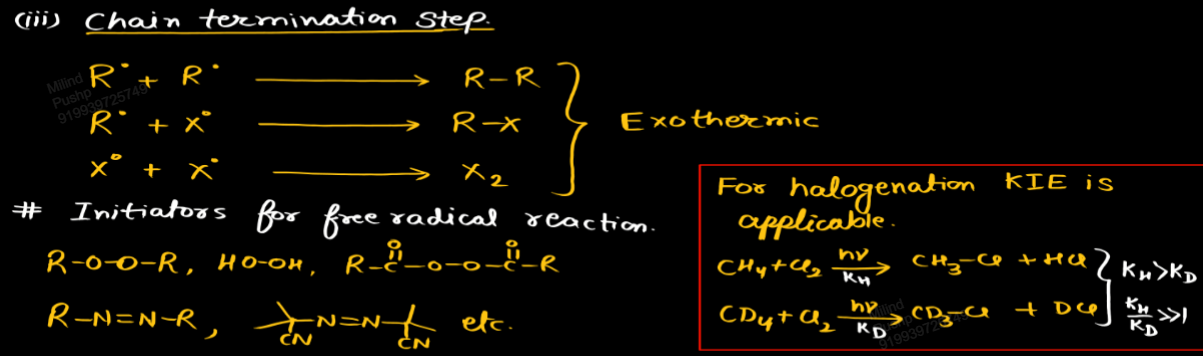 (iii) Chain termination step.
R• + R• ⟶ R–R
R• + X• ⟶ R–X
X• + X• ⟶ X₂
} Exothermic
Milind
Pushp
919939725749
# Initiators for free radical reaction.
R–O–O–R, HO–OH, R–C(=O)–O–O–C(=O)–R
R–N=N–R, CN –N=N– CN etc.
For halogenation KIE is
applicable.
CH₄ + Cl₂ —hν/K_H→ CH₃–Cl + HCl
CD₄ + Cl₂ —hν/K_D→ CD₃–Cl + DCl
} K_H > K_D
K_H/K_D >> 1